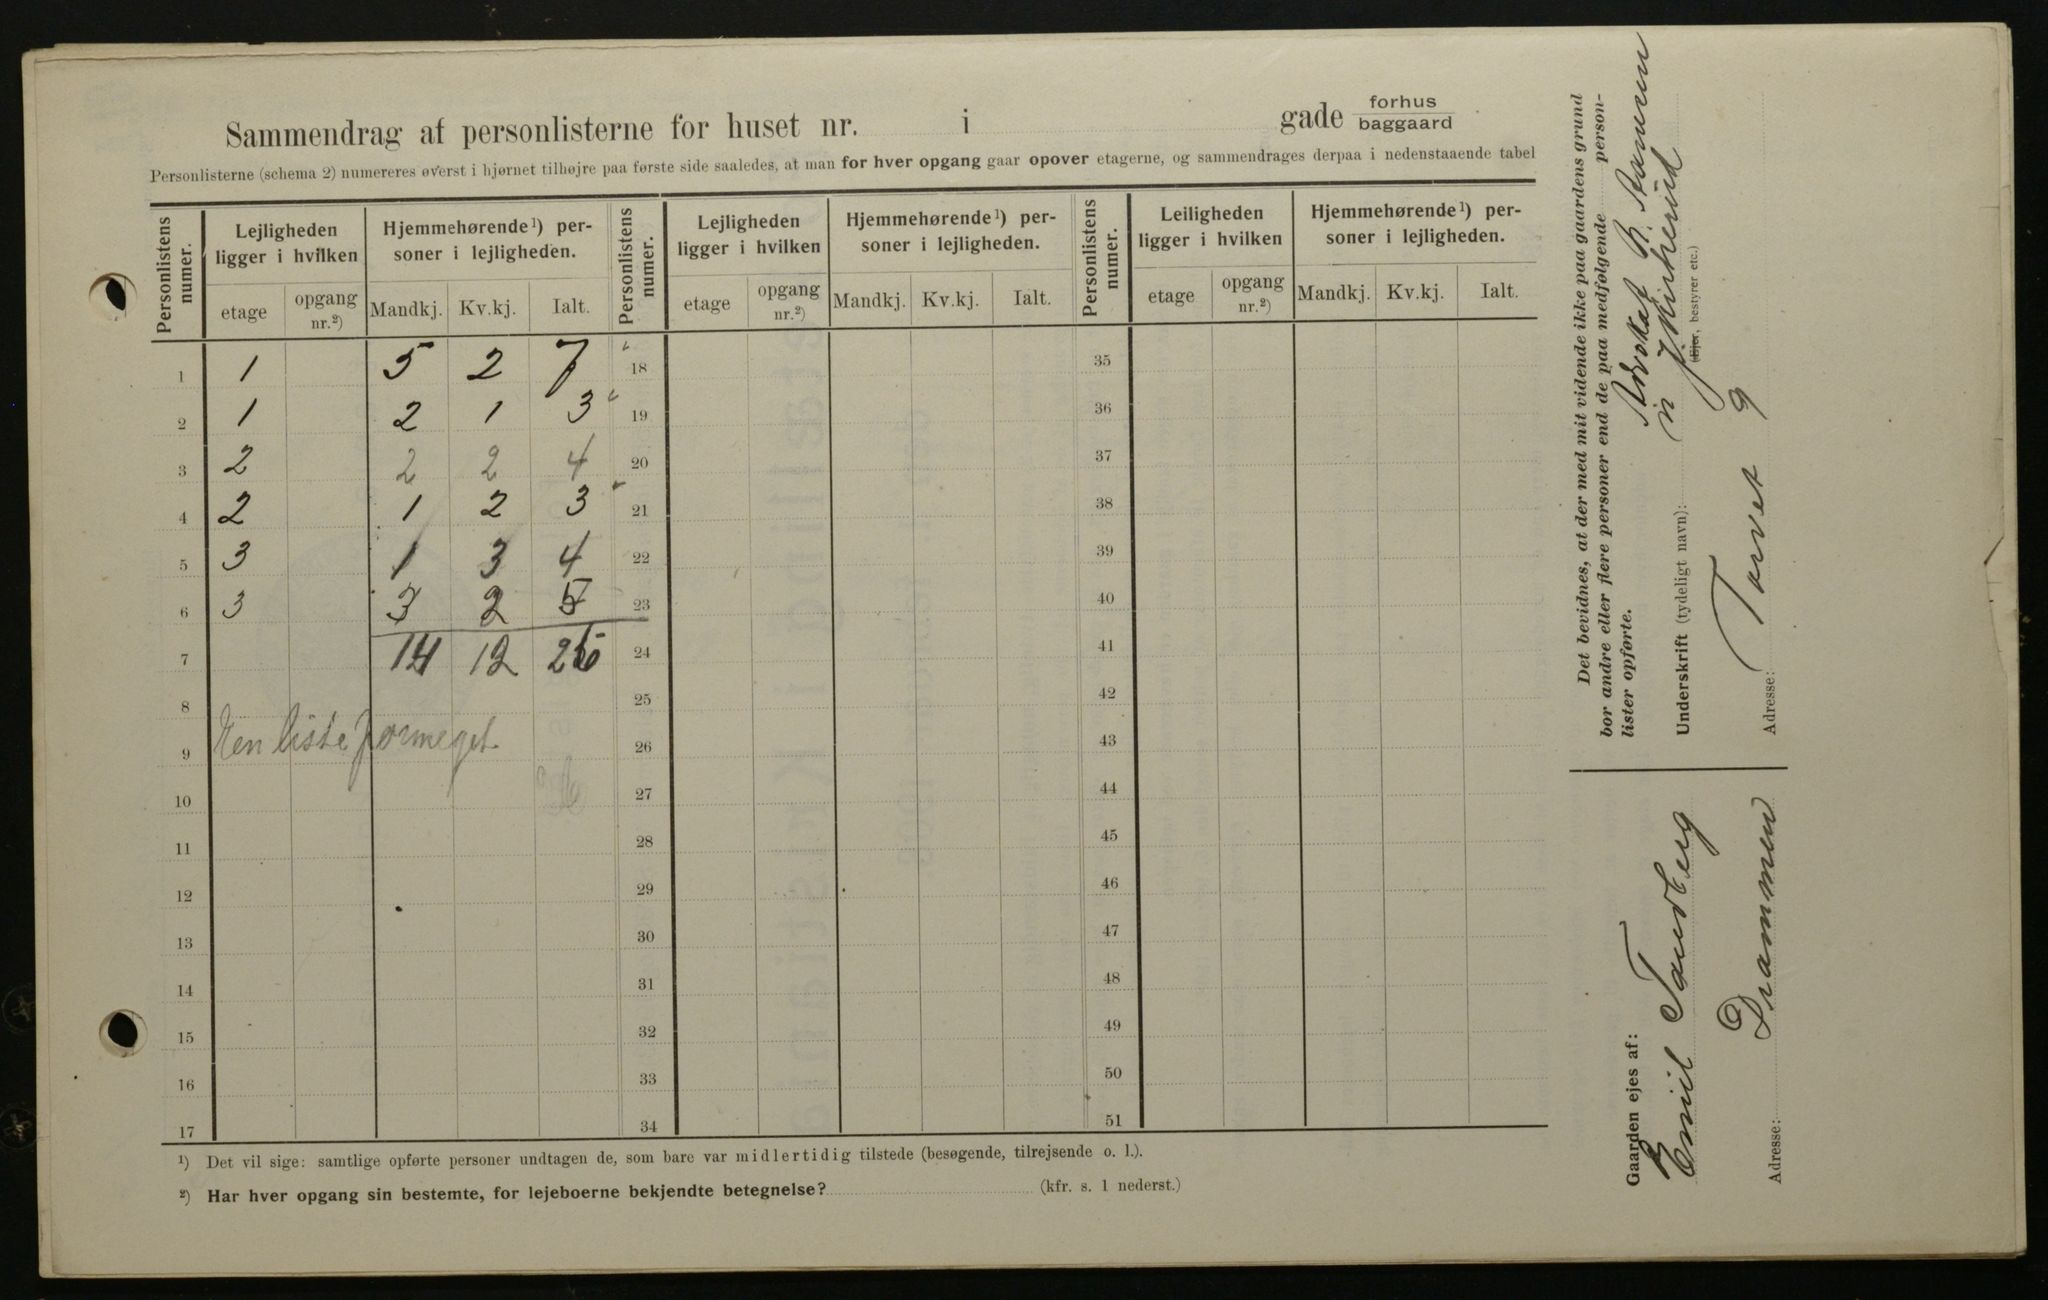 Sammendrag af personlisterne for huset nr. i gade forhus baggaard
Personlisterne (schema 2) numereres øverst i hjørnet tilhøjre paa første side saaledes, at man for hver opgang gaar opover etagerne, og sammendrages derpaa i nedenstaaende tabel
Personlistens numer. Lejligheden ligger i hvilken Hjemmehørende¹) personer i lejligheden. Personlistens numer. Lejligheden ligger i hvilken Hjemmehørende¹) personer i lejligheden. Personlistens numer. Leiligheden ligger i hvilken Hjemmehørende¹) personer i lejligheden.
etage opgang nr.²) Mandkj. Kv.kj. Ialt. etage opgang nr.²) Mandkj. Kv.kj. Ialt. etage opgang nr.²) Mandkj. Kv.kj. Ialt.
1 1 5 2 7 18 35
2 1 2 1 3 19 36
3 2 2 2 4 20 37
4 2 1 2 3 21 38
5 3 1 3 4 22 39
6 3 3 2 5 23 40
7 14 12 26 24 41
8 25 42
9 Een liste formeget 26 43
10 27 44
11 28 45
12 29 46
13 30 47
14 31 48
15 32 49
16 33 50
17 34 51
¹) Det vil sige: samtlige opførte personer undtagen de, som bare var midlertidig tilstede (besøgende, tilrejsende o. l.).
²) Har hver opgang sin bestemte, for lejeboerne bekjendte betegnelse? (kfr. s. 1 nederst.)
Det bevidnes, at der med mit vidende ikke paa gaardens grund
bor andre eller flere personer end de paa medfølgende personlister opførte.
Advokat
Underskrift (tydeligt navn):
(Ejer, bestyrer etc.)
Adresse: Torvet 9
Gaarden ejes af:
Emil Tandberg
Adresse: Drammen